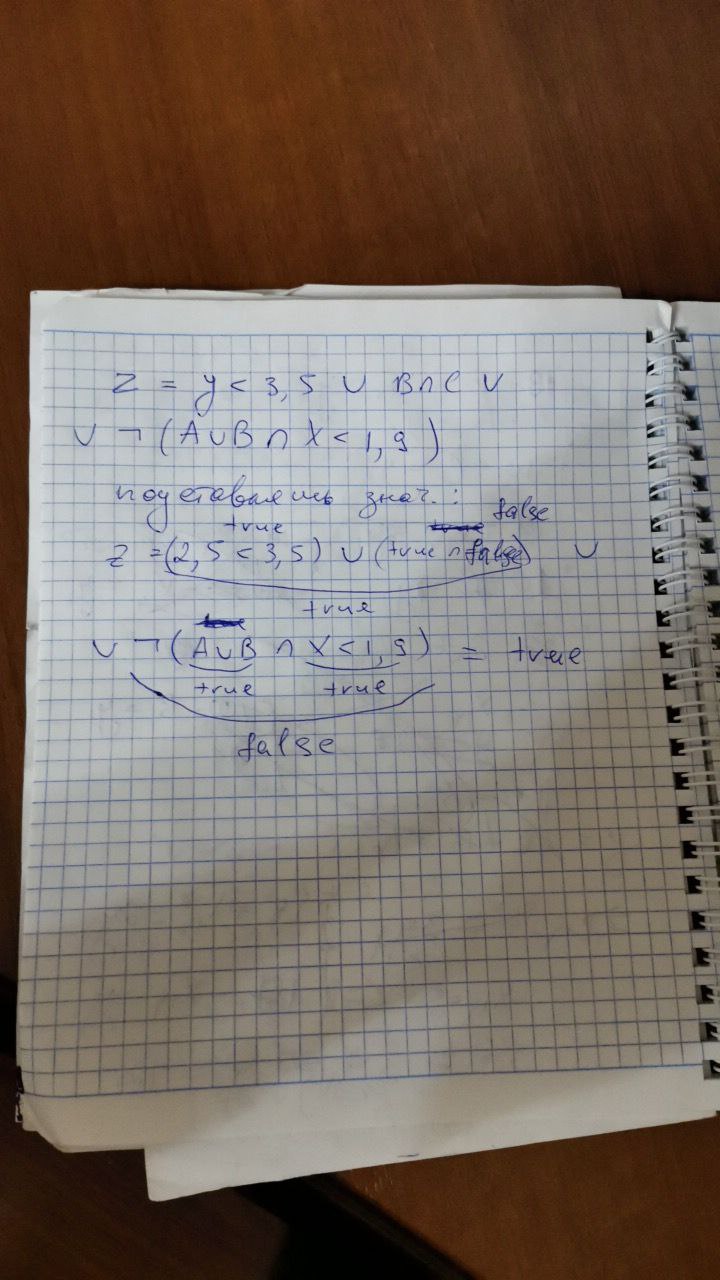 Z = y < 3,5 ∪ B∩C ∪
∪ ¬ (A∪B ∩ X < 1,9)
подставляешь знач.:
true false
Z = (2,5 < 3,5) ∪ (true ∩ false) ∪
true
∪ ¬ (A∪B ∩ X < 1,9) = true
true true
false